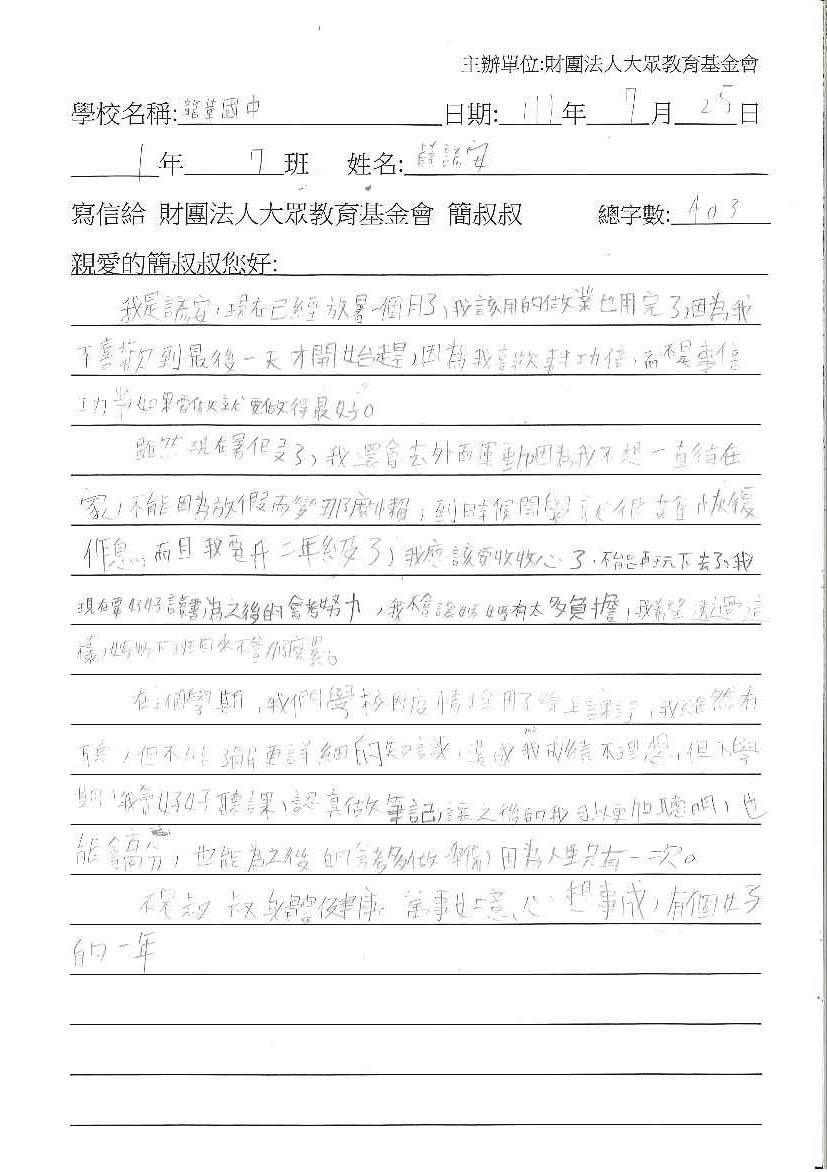 主辦單位:財團法人大眾教育基金會
學校名稱: 龍華國中 日期: 111年 7月 25日
1年 7班 姓名: 薛諺安
寫信給 財團法人大眾教育基金會 簡叔叔 總字數: 403
親愛的簡叔叔您好:
我是諺安,現在已經放暑一個月了,我該用的做業也用完了,因為我
不喜歡到最後一天才開始趕,因為我喜歡事半功倍,而不是事倍
功半如果要做就要做得最好。
雖然現在暑假了,我還會去外面運動因為我不想一直待在
家,不能因為放假而變那麼懶,到時候開學就很難恢復
作息。而且我要升二年級了,我應該要收收心了,不能再玩下去了,我
現在要好好讀書為之後的會考努力,我不會讓媽媽有太多負擔,我希望透過這
樣,媽媽下班回來不會那麼累。
在這個學期,我們學校因疫情採用了線上課程,我雖然有
聽,但不能了解更詳細的知識,造成我成績不理想,但下學
期,我會好好聽課,認真做筆記,讓之後的我可以更加聰明,也
能搞分,也能為之後的會考多做準備,因為人生只有一次。
祝叔叔身體健康 萬事如意、心想事成,有個好
的一年